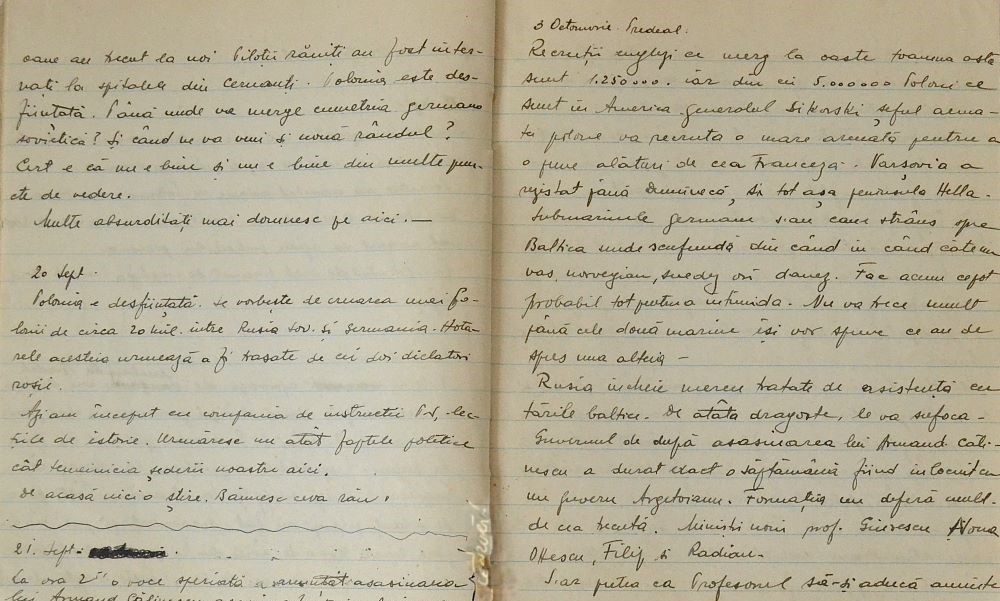 oane au trecut la noi. Piloții răniți au fost inter-
nați la spitalul din Cernăuți. Polonia este des-
ființată. Până unde va merge cumetria germano
sovietică? Și când ne va veni și nouă rândul?
Cert e că nu e bine și nu e bine din multe punc-
te de vedere.
Multe absurdități mai domnesc pe aici. —
20 Sept.
Polonia e desființată. Se vorbește de crearea unei Po-
lonii de circa 20 mil. între Rusia Sov. și Germania. Hota-
rele acesteia urmează a fi trasate de cei doi dictatori
roșii.
Azi am început cu compania de instrucții lec-
țiile de istorie. Urmăresc nu atât faptele politice
cât temeinicia șederii noastre aici.
De acasă nici o știre. Bănuesc ceva rău.
21. Sept.
La ora 2 o voce speriată a anunțat asasinarea
lui Armand Călinescu
3 Octomvrie. Predeal.
Recruții englezi ce merg la oaste toamna asta
sunt 1.250.000. iar din cei 5.000.000 Poloni ce
sunt în America generalul Sikorski șeful arma-
tei polone va recruta o mare armată pentru a
o pune alături de cea Franceză. Varșovia a
rezistat până Duminecă, și tot așa peninsula Hella.
Submarinele germane s-au cam strâns spre
Baltica unde scufundă din când în când câte un
vas norvegian, suedez ori danez. Fac acum
probabil tot pentru a intimida. Nu va trece mult
până cele două marine își vor spune ce au de
spus una alteia —
Rusia încheie mereu tratate de asistență cu
țările baltice. De atâta dragoste, le va sufoca.
Guvernul de după asasinarea lui Armand Căli-
nescu a durat exact o săptămână fiind înlocuit cu
un guvern Argetoianu. Formația nu diferă mult
de cea trecută. Miniștri noui prof. Giurescu
Ottescu, Filip și Radian.
S-ar putea ca Profesorul să-și aducă aminte